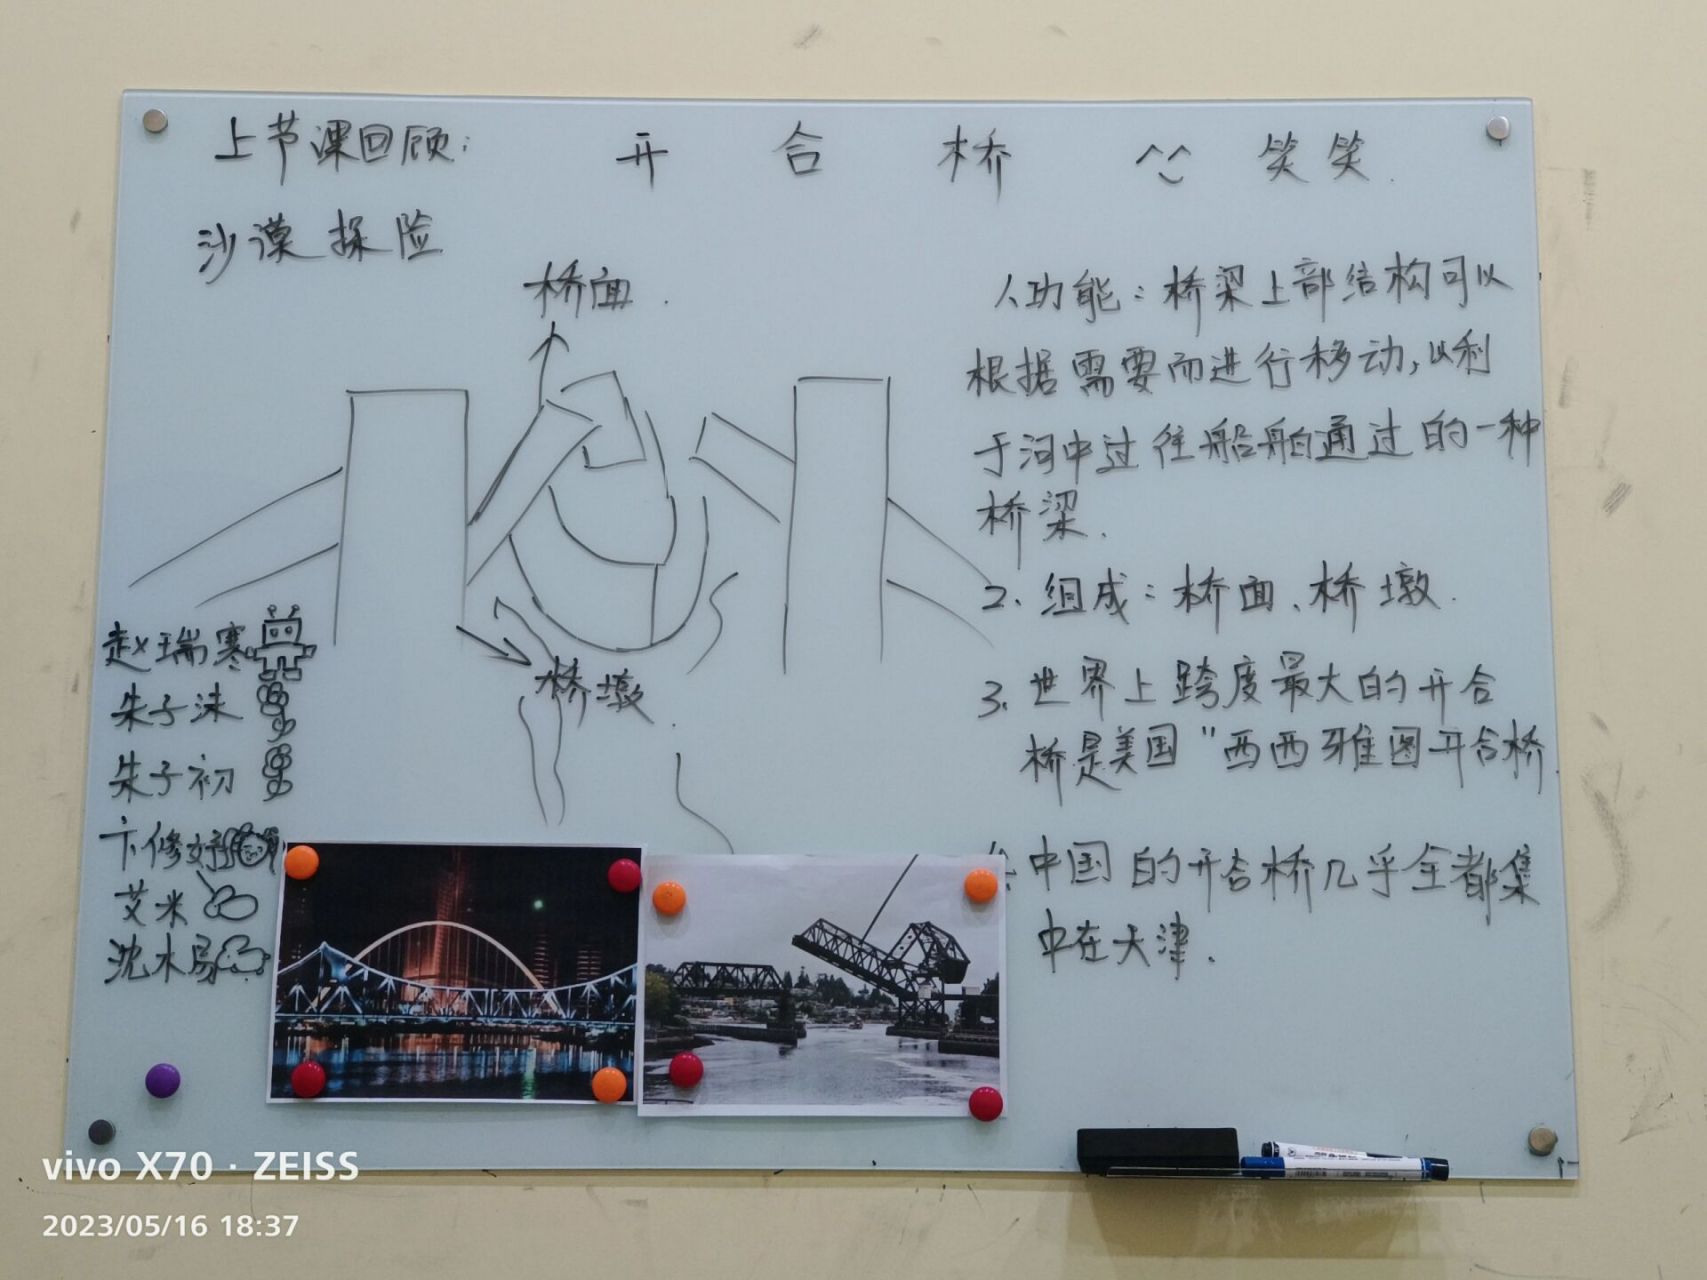 上节课回顾:
开 合 桥 笑笑.
沙漠探险
桥面.
1.功能:桥梁上部结构可以
根据需要而进行移动,以利
于河中过往船舶通过的一种
桥梁.
2.组成:桥面、桥墩.
桥墩.
3.世界上跨度最大的开合
桥是美国"西西雅图开合桥
中国的开合桥几乎全都集
中在大津.
赵瑞寒
朱子沫
朱子初
卞修妤
艾米
沈木易
vivo X70 · ZEISS
2023/05/16 18:37